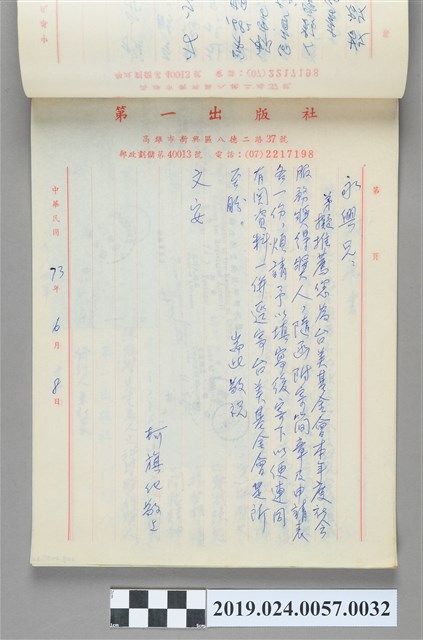 (07)2217198
第一出版社
高雄市新興區八德二路37號
郵政劃儲第40013號 電話：(07)2217198
第 頁
永興兄：
弟擬推薦您為台美基金會本年度社会
服務獎得獎人，隨函附寄簡章及申請表
各一份，煩請予以填寫後寄下以便連同
有関資料一併逕寄台美基金會是所
至盼。 耑此敬祝
文安
柯旗化敬上
中華民國 73年 6月 8日
2019.024.0057.0032